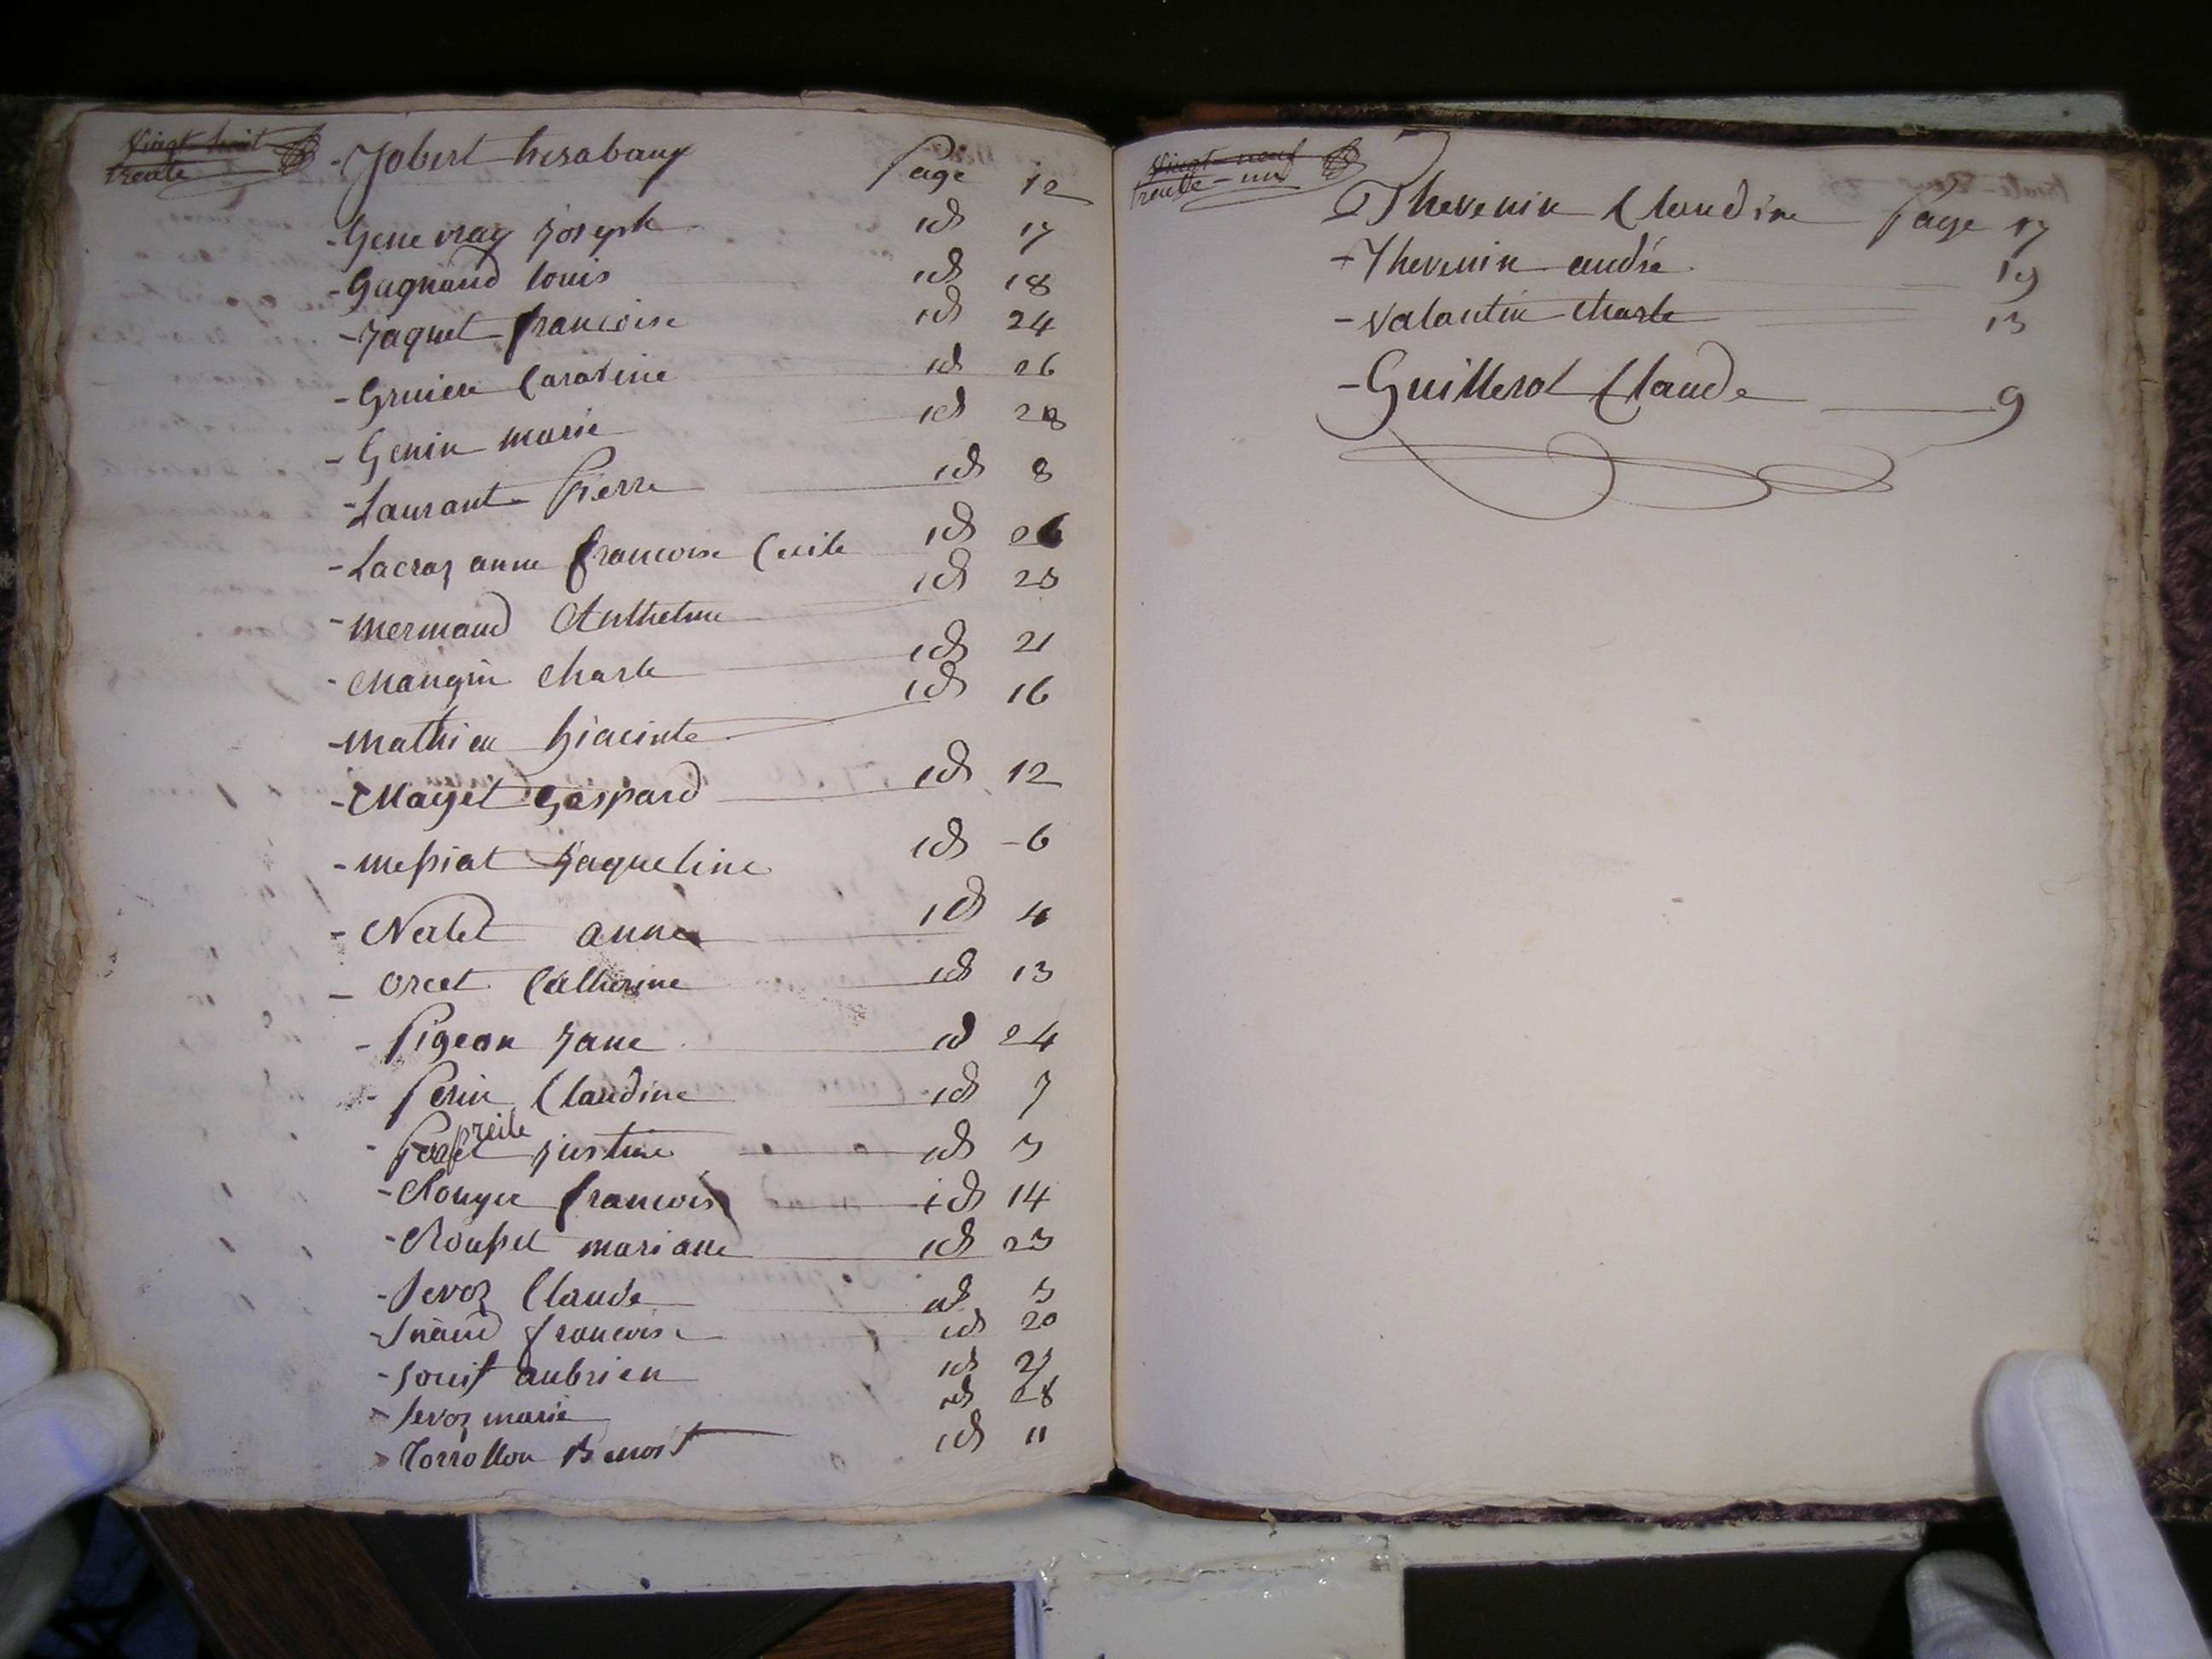 vingt huit
trente
- Jobert Page 12
- Genevray Joseph id 17
- Gagnaud louis id 18
- Jaquet francoise id 24
- Gruiere Caroline id 26
- Genin marie id 28
- Laurant Pierre id 8
- Lacraz anne francoise Cecile id 26
- mermand Anthelme id 25
- Mangin Charle id 21
- Mathieu hiacinte id 16
- Mayet Gaspard id 12
- messiat Jaqueline id - 6
- Nalet anne id 4
- orcet Catherine id 13
- Pigeon Jane id 24
- Perin Claudine id 7
- justine id 3
- Rouyer francois id 14
- Rousset mariane id 23
- Sevoz Claude id 3
- francoise id 20
- aubrien id
- Sevoz marie id 28
- Torrollon Benoist id 11
vingt-neuf
trente-un
Thevenin Claudine Page 17
- Thevenin andré 19
- Valantin Charle 13
- Guillerot Claude 9